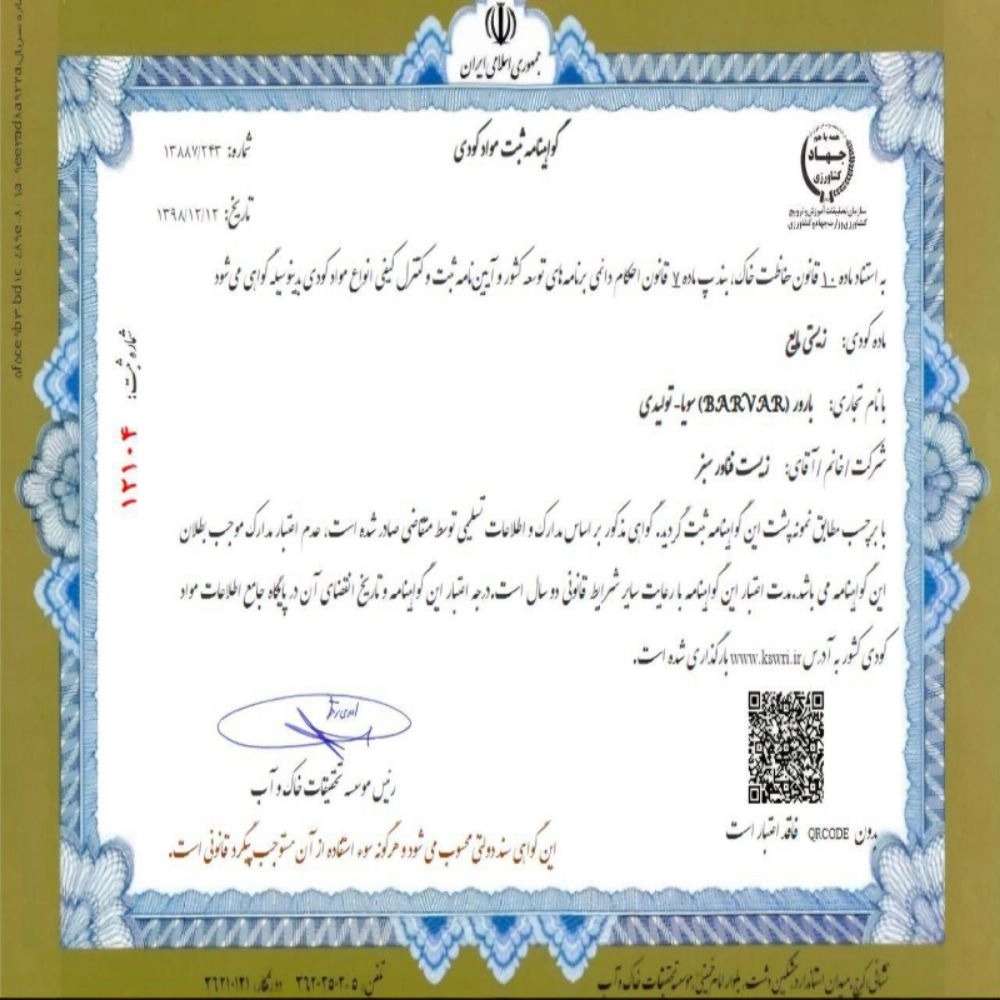 جمهوری اسلامی ایران
گواهینامه ثبت مواد کودی
شماره: ۱۳۸۸۷/۲۴۳
تاریخ: ۱۳۹۸/۱۲/۱۲
همه با هم
جهاد
کشاورزی
سازمان تحقیقات، آموزش و ترویج
کشاورزی وزارت جهاد کشاورزی
به استناد ماده ۱۰ قانون حفاظت خاک، بند پ ماده ۷ قانون احکام دائمی برنامه های توسعه کشور و آیین نامه ثبت و کنترل کیفی انواع مواد کودی بدینوسیله گواهی می شود
ماده کودی: زیستی مایع
با نام تجاری: بارور (BARVAR) سویا- تولیدی
شرکت/خانم/آقای: زیست فناور سبز
با برچسب مطابق نمونه پشت این گواهینامه ثبت گردید. گواهی مذکور بر اساس مدارک و اطلاعات تسلیمی توسط متقاضی صادر شده است، عدم اعتبار مدارک موجب بطلان
این گواهینامه می باشد. مدت اعتبار این گواهینامه با رعایت سایر شرایط قانونی دو سال است. درجه اعتبار این گواهینامه و تاریخ انقضای آن در پایگاه جامع اطلاعات مواد
کودی کشور به آدرس www.kswri.ir بارگذاری شده است.
شماره ثبت: ۱۲۱۰۴
رئیس موسسه تحقیقات خاک و آب
بدون QRCODE فاقد اعتبار است
این گواهی سند دولتی محسوب می شود و هرگونه سوء استفاده از آن مستوجب پیگرد قانونی است.
نشانی: کرج، میدان استاندارد، مشکین دشت، بلوار امام خمینی، موسسه تحقیقات خاک و آب